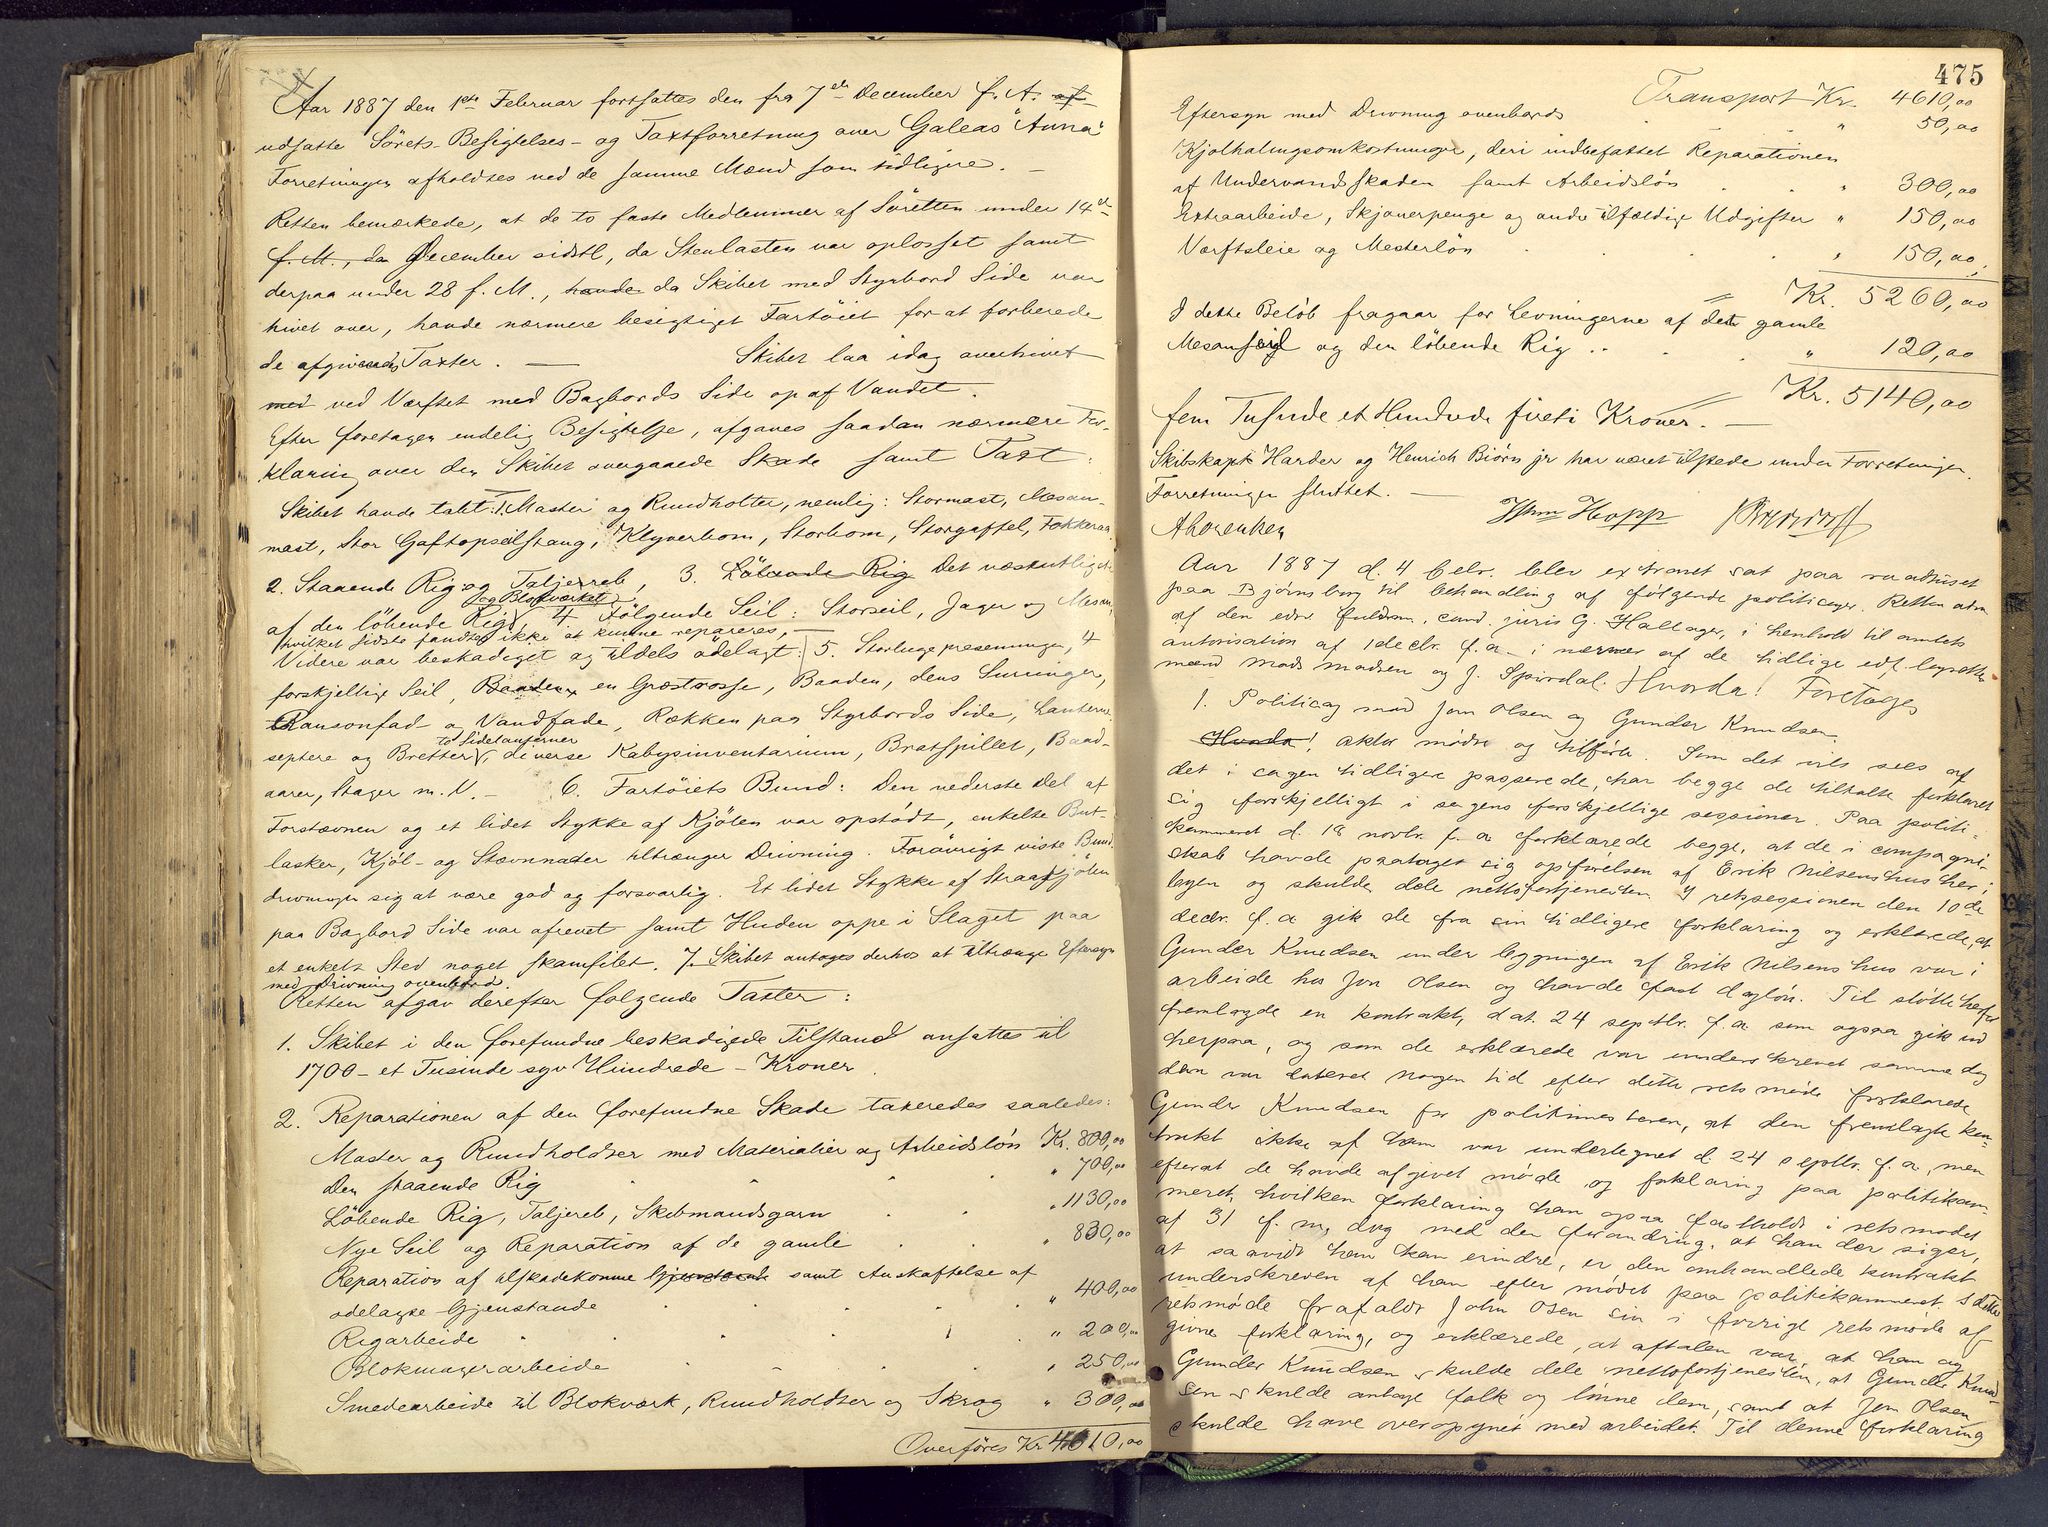 Aar 1887 den 1ste Februar fortsattes den fra 7de December f. A. af
udsatte Sörets-Besigtelses- og Taxtforretning over Galeas "Anna"
Forretningen afholdtes ved de samme Mænd som tidligere. —
Retten bemærkede, at de to faste Medlemmer af Söretten under 14de
f. M., da December sidstl, da Stenlasten var oplosset samt
derpaa under 28 f. M., havde da Skibet med Styrbord Side var
hivet over, havde nærmere besigtiget Fartöiet for at forberede
de afgivende Taxter. — Skibet laa idag overhivet
med ved Værftet med Bagbords Side op af Vandet.
Efter foretagen endelig Besigtelse, afgaves saadan nærmere For-
klaring over den Skibet overgaaede Skade samt Taxt:
Skibet havde tabt: 1. Master og Rundholter, nemlig: Stormast, Mesan-
mast, Stor Gaftopseilstang, Klyverbom, Storbom, Storgaffel, Fokkeraa
2. Staaende Rig og Taljereb, 3. Löbende Rig Det væsentligste
af den löbende Rig og Blokværket, 4 Fölgende Seil: Storseil, Jager og Mesan,
hvilket sidste fandtes ikke at kunne repareres, —
Videre var beskadiget og tildels ödelagt: 5. Storlugepresenninger, 4
forskjellige Seil, Baaden, en Græstrosse, Baaden, dens Surringer,
Ransonfad og Vandfade, Rækken paa Styrbords Side, Lanterne
to Sidelanterner
septere og Bretter, diverse Kabysinventarium, Bratspillet, Baad-
aarer, Stager m. V. — 6. Fartöiets Bund: Den nederste Del af
Forstævnen og et lidet Stykke af Kjölen var opstødt, enkelte But-
lasker, Kjöl- og Stævnnader tiltrænger Drivning. Forövrigt viste Bund
drivningen sig at være god og forsvarlig. Et lidet Stykke af Straakjölen
paa Bagbord Side var afrevet samt Huden oppe i Slaget paa
et enkelt Sted noget skamfilet. 7. Skibet antages derhos at tiltrænge Eftersyn
med Drivning ovenbord.
Retten afgav derefter følgende Taxter:
1. Skibet i den forefundne beskadigede Tilstand ansattes til
1700 — et Tusinde syv Hundrede — Kroner.
2. Reparationen af den forefundne Skade taxeredes saaledes:
Master og Rundholdter med Materialier og Arbeidslön Kr. 800,00
Den staaende Rig . . . " 700,00
Löbende Rig, Taljereb, Skibmandsgarn . . " 1130,00
Nye Seil og Reparation af de gamle . . " 830,00
Reparation af tilskadekomne Gjenstande samt Anskaffelse af
ödelagte Gjenstande . . . . " 400,00
Rigarbeide . . . . " 200,00
Blokmagerarbeide . . . . " 250,00
Smedearbeide til Blokværk, Rundholdter og Skrog " 300,00
Overföres Kr 4610,00
475
Transport Kr. 4610,00
Eftersyn med Drivning ovenbords . . " 50,00
Kjølhalingsomkostninger, deri indbefattet Reparationen
af Undervandsskaden samt Arbeidslön . . " 300,00
Extraarbeide, Skjouerpenge og andre tilfældige Udgifter " 150,00
Værftsleie og Mesterlön . . . " 150,00
Kr. 5260,00
I dette Belöb fragaar for Levningerne af det gamle
Mesanseil og den löbende Rig . . " 120,00
Kr. 5140,00
fem Tusinde et Hundrede firti Kroner. —
Skibskapt Harder og Henrich Biörn jr har været tilstede under Forretningen
Forretningen sluttet. —
Hopp
Aar 1887 d. 4 febr. blev extraret sat paa raadhuset
paa Bjørnsborg til behandling af følgende politisager. Retten adm
af den edsv fuldm. cand. juris G. Hallager, i henhold til amtets
autorisation af 1 decbr. f. a. i nærvær af de tidlige edf. lagrettes
mænd Mads Madsen og J. Spirdal. Hvorda! Foretages
1. Politisag mod Jon Olsen og Gunder Knudsen
Hvorda! aktor mødte og tilførte. Som det vil sees af
det i sagen tidligere passerede, har begge de tiltalte forklaret
sig forskjelligt i sagens forskjellige sessioner. Paa politi-
kammeret d. 18 novbr. f. a forklarede begge, at de i compagni-
skab havde paataget sig opførelsen af Erik Nilsens hus her i
byen og skulde dele nettofortjenesten. I retssessionen den 10de
decbr. f. a gik de fra sin tidligere forklaring og erklærede, at
Gunder Knudsen under bygningen af Erik Nilsens hus var i
arbeide hos Jon Olsen og havde fast dagløn. Til støtte herfor
fremlagde en kontrakt, dat. 24 septbr. f. a. som ogsaa gik ud
herpaa, og som de erklærede var underskrevet samme dag
den var dateret nogen tid efter dette retsmøde forklarede
Gunder Knudsen for politimesteren, at den fremlagte kon-
trakt ikke af ham var undertegnet d. 24 septbr. f. a., men
efterat de havde afgivet møde og forklaring paa politikam-
meret, hvilken forklaring han ogsaa fastholdt i retsmødet
af 31 f. m, dog med den forandring, at han der siger,
at saavidt han kan erindre, er den omhandlede kontrakt
underskreven af ham efter mødet paa politikammeret. I dette
retsmøde frafaldt John Olsen sin i forrige retsmøde af
givne forklaring, og erklærede, at aftalen var, at han og
Gunder Knudsen skulde dele nettofortjenesten, at Gunder Knud
sen skulde antage folk og lønne dem, samt at Jon Olsen
skulde have overopsynet med arbeidet. Til denne forklaring